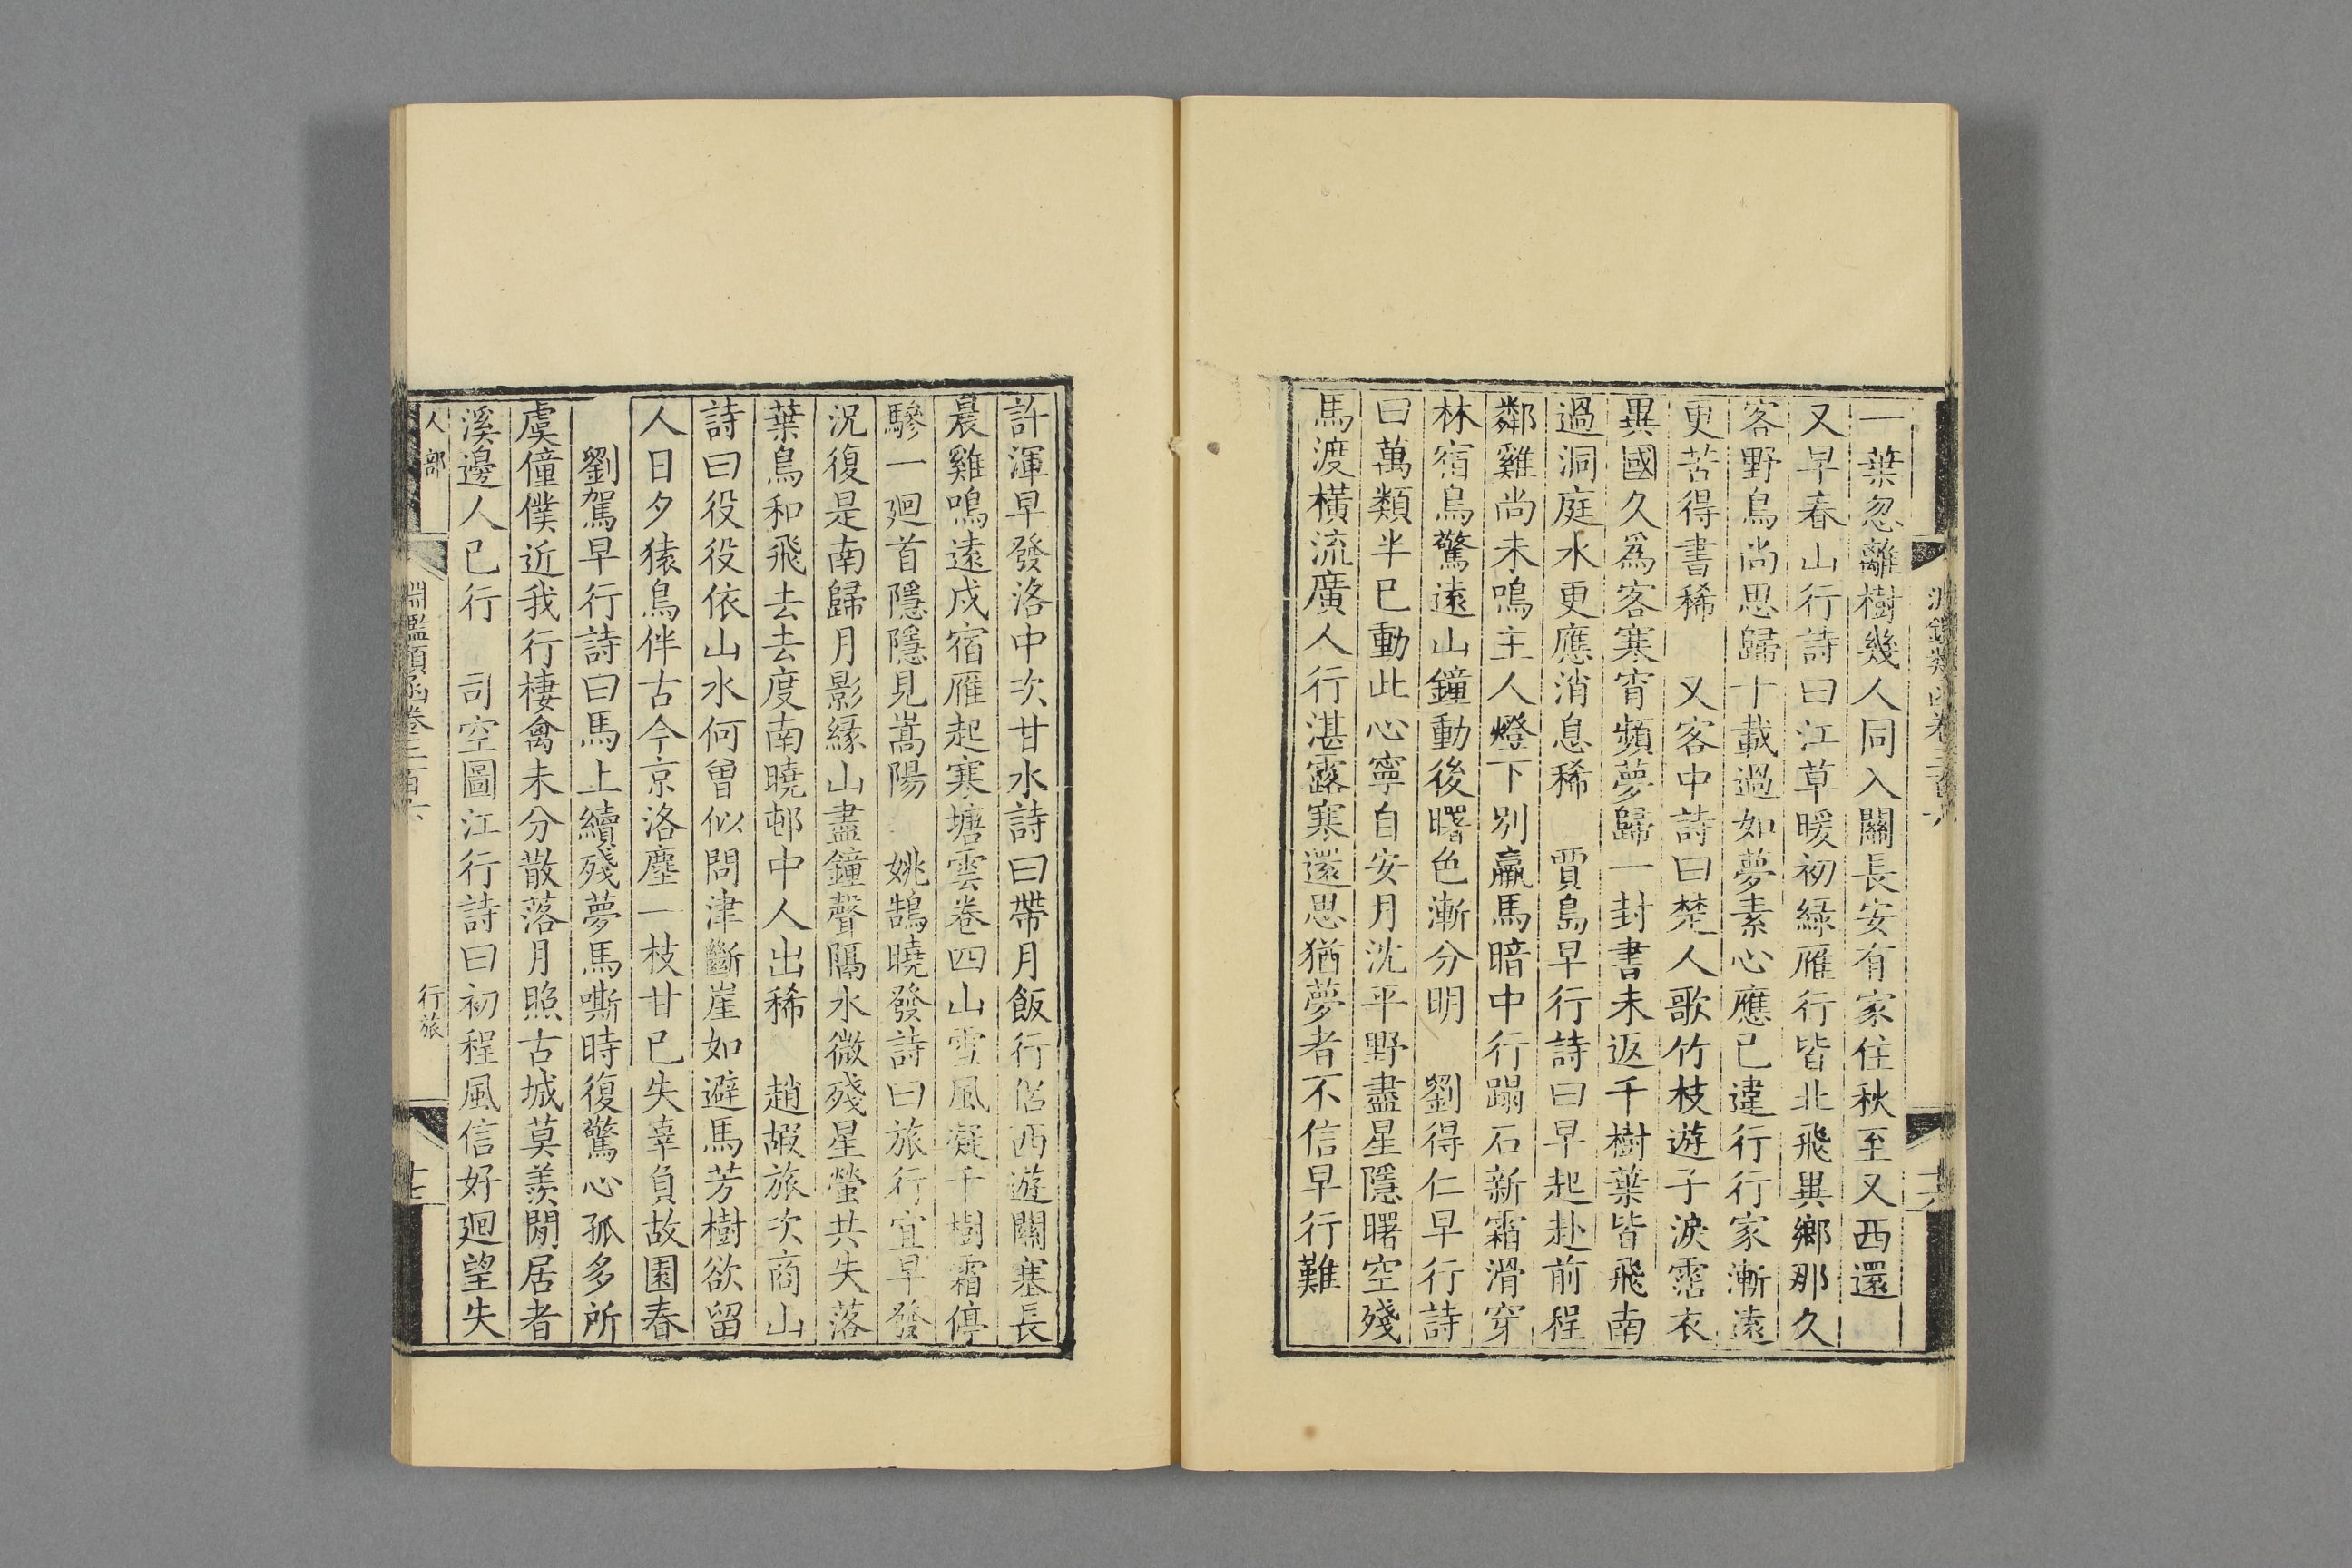 一葉忽離樹幾人同入關長安有家住秋至又西還
又早春山行詩曰江草暖初綠雁行皆北飛異鄉那久
客野鳥尚思歸十載過如夢素心應已違行行家漸遠
更苦得書稀 又客中詩曰楚人歌竹枝遊子淚霑衣
異國久爲客寒宵頻夢歸一封書未返千樹葉皆飛南
過洞庭水更應消息稀 賈島早行詩曰早起赴前程
鄰雞尚未鳴主人燈下別羸馬暗中行蹋石新霜滑穿
林宿鳥驚遠山鐘動後曙色漸分明 劉得仁早行詩
曰萬類半已動此心寧自安月沈平野盡星隱曙空殘
馬渡橫流廣人行湛露寒還思猶夢者不信早行難
許渾早發洛中次甘水詩曰帶月飯行侶西遊關塞長
晨雞鳴遠戍宿雁起寒塘雲卷四山雪風凝千樹霜停
驂一廻首隱隱見嵩陽 姚鵠曉發詩曰旅行宜早發
況復是南歸月影緣山盡鐘聲隔水微殘星螢共失落
葉鳥和飛去去度南曉邨中人出稀 趙嘏旅次商山
詩曰役役依山水何曾似問津斷崖如避馬芳樹欲留
人日夕猿鳥伴古今京洛塵一枝甘已失辜負故園春
劉駕早行詩曰馬上續殘夢馬嘶時復驚心孤多所
虞僮僕近我行棲禽未分散落月照古城莫羨閒居者
溪邊人已行 司空圖江行詩曰初程風信好廻望失
人部
淵鑑類函卷三百六
行旅